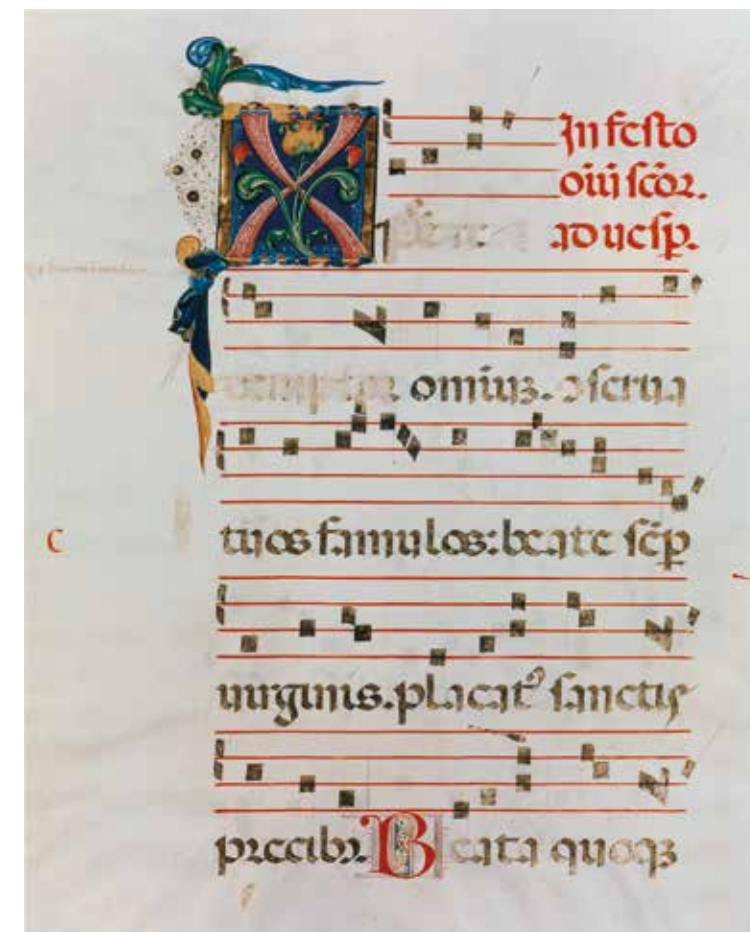 X
In festo
oiũ scõꝝ.
ad uesp̃.
omiũꝫ. ꝯserua
tuos famulos: beate sẽp
uirginis. placatꝰ sanctis
precibꝫ. Beata quoqꝫ
c